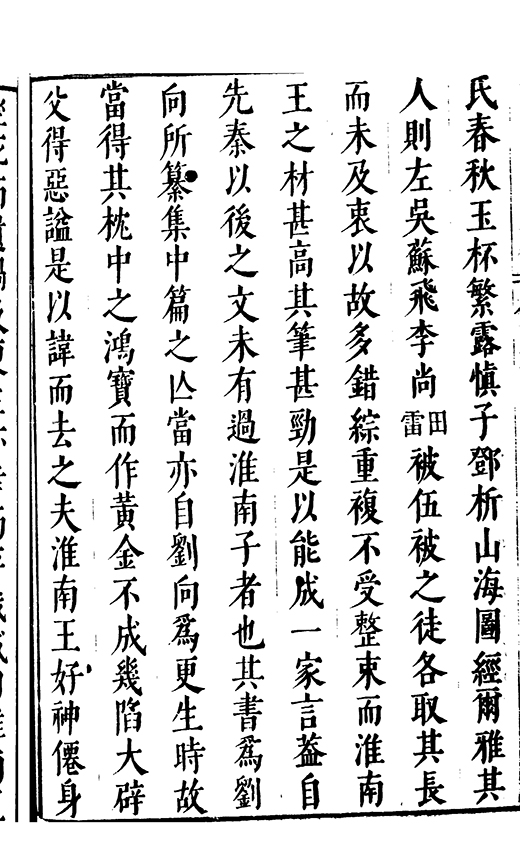 氏春秋玉杯繁露慎子鄧析山海圖經爾雅其
人則左吳蘇飛李尚田雷被伍被之徒各取其長
而未及衷以故多錯綜重複不受整束而淮南
王之材甚高其筆甚勁是以能成一家言葢自
先秦以後之文未有過淮南子者也其書爲劉
向所纂集中篇之亾當亦自劉向爲更生時故
當得其枕中之鴻寶而作黃金不成幾陷大辟
父得惡謚是以諱而去之夫淮南王好神僊身